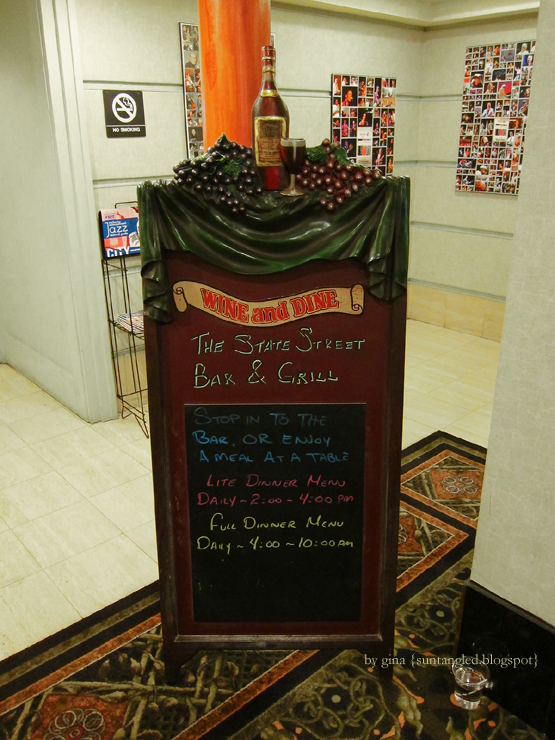 NO SMOKING
Jazz
CITY
WINE and DINE
THE STATE STREET
BAR & GRILL
STOP IN TO THE
BAR, OR ENJOY
A MEAL AT A TABLE
LITE DINNER MENU
DAILY ~ 2:00 ~ 4:00 PM
FULL DINNER MENU
DAILY ~ 4:00 ~ 10:00 AM
by gina {suntangled.blogspot}